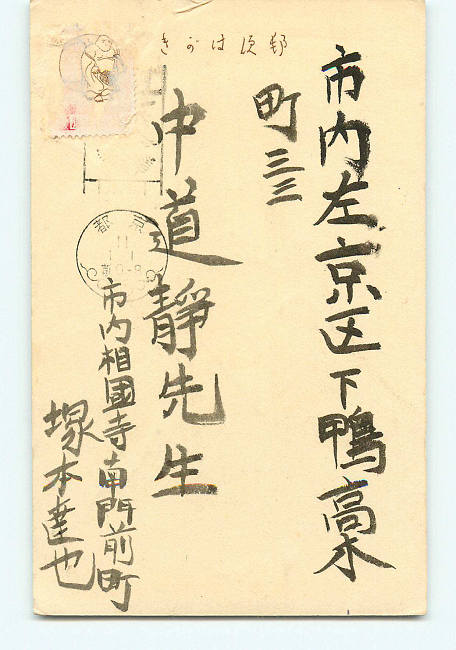 郵便はがき
市内左京区下鴨高木
町三三
中道靜先生
市内相國寺南門前町
塚本達也
京都